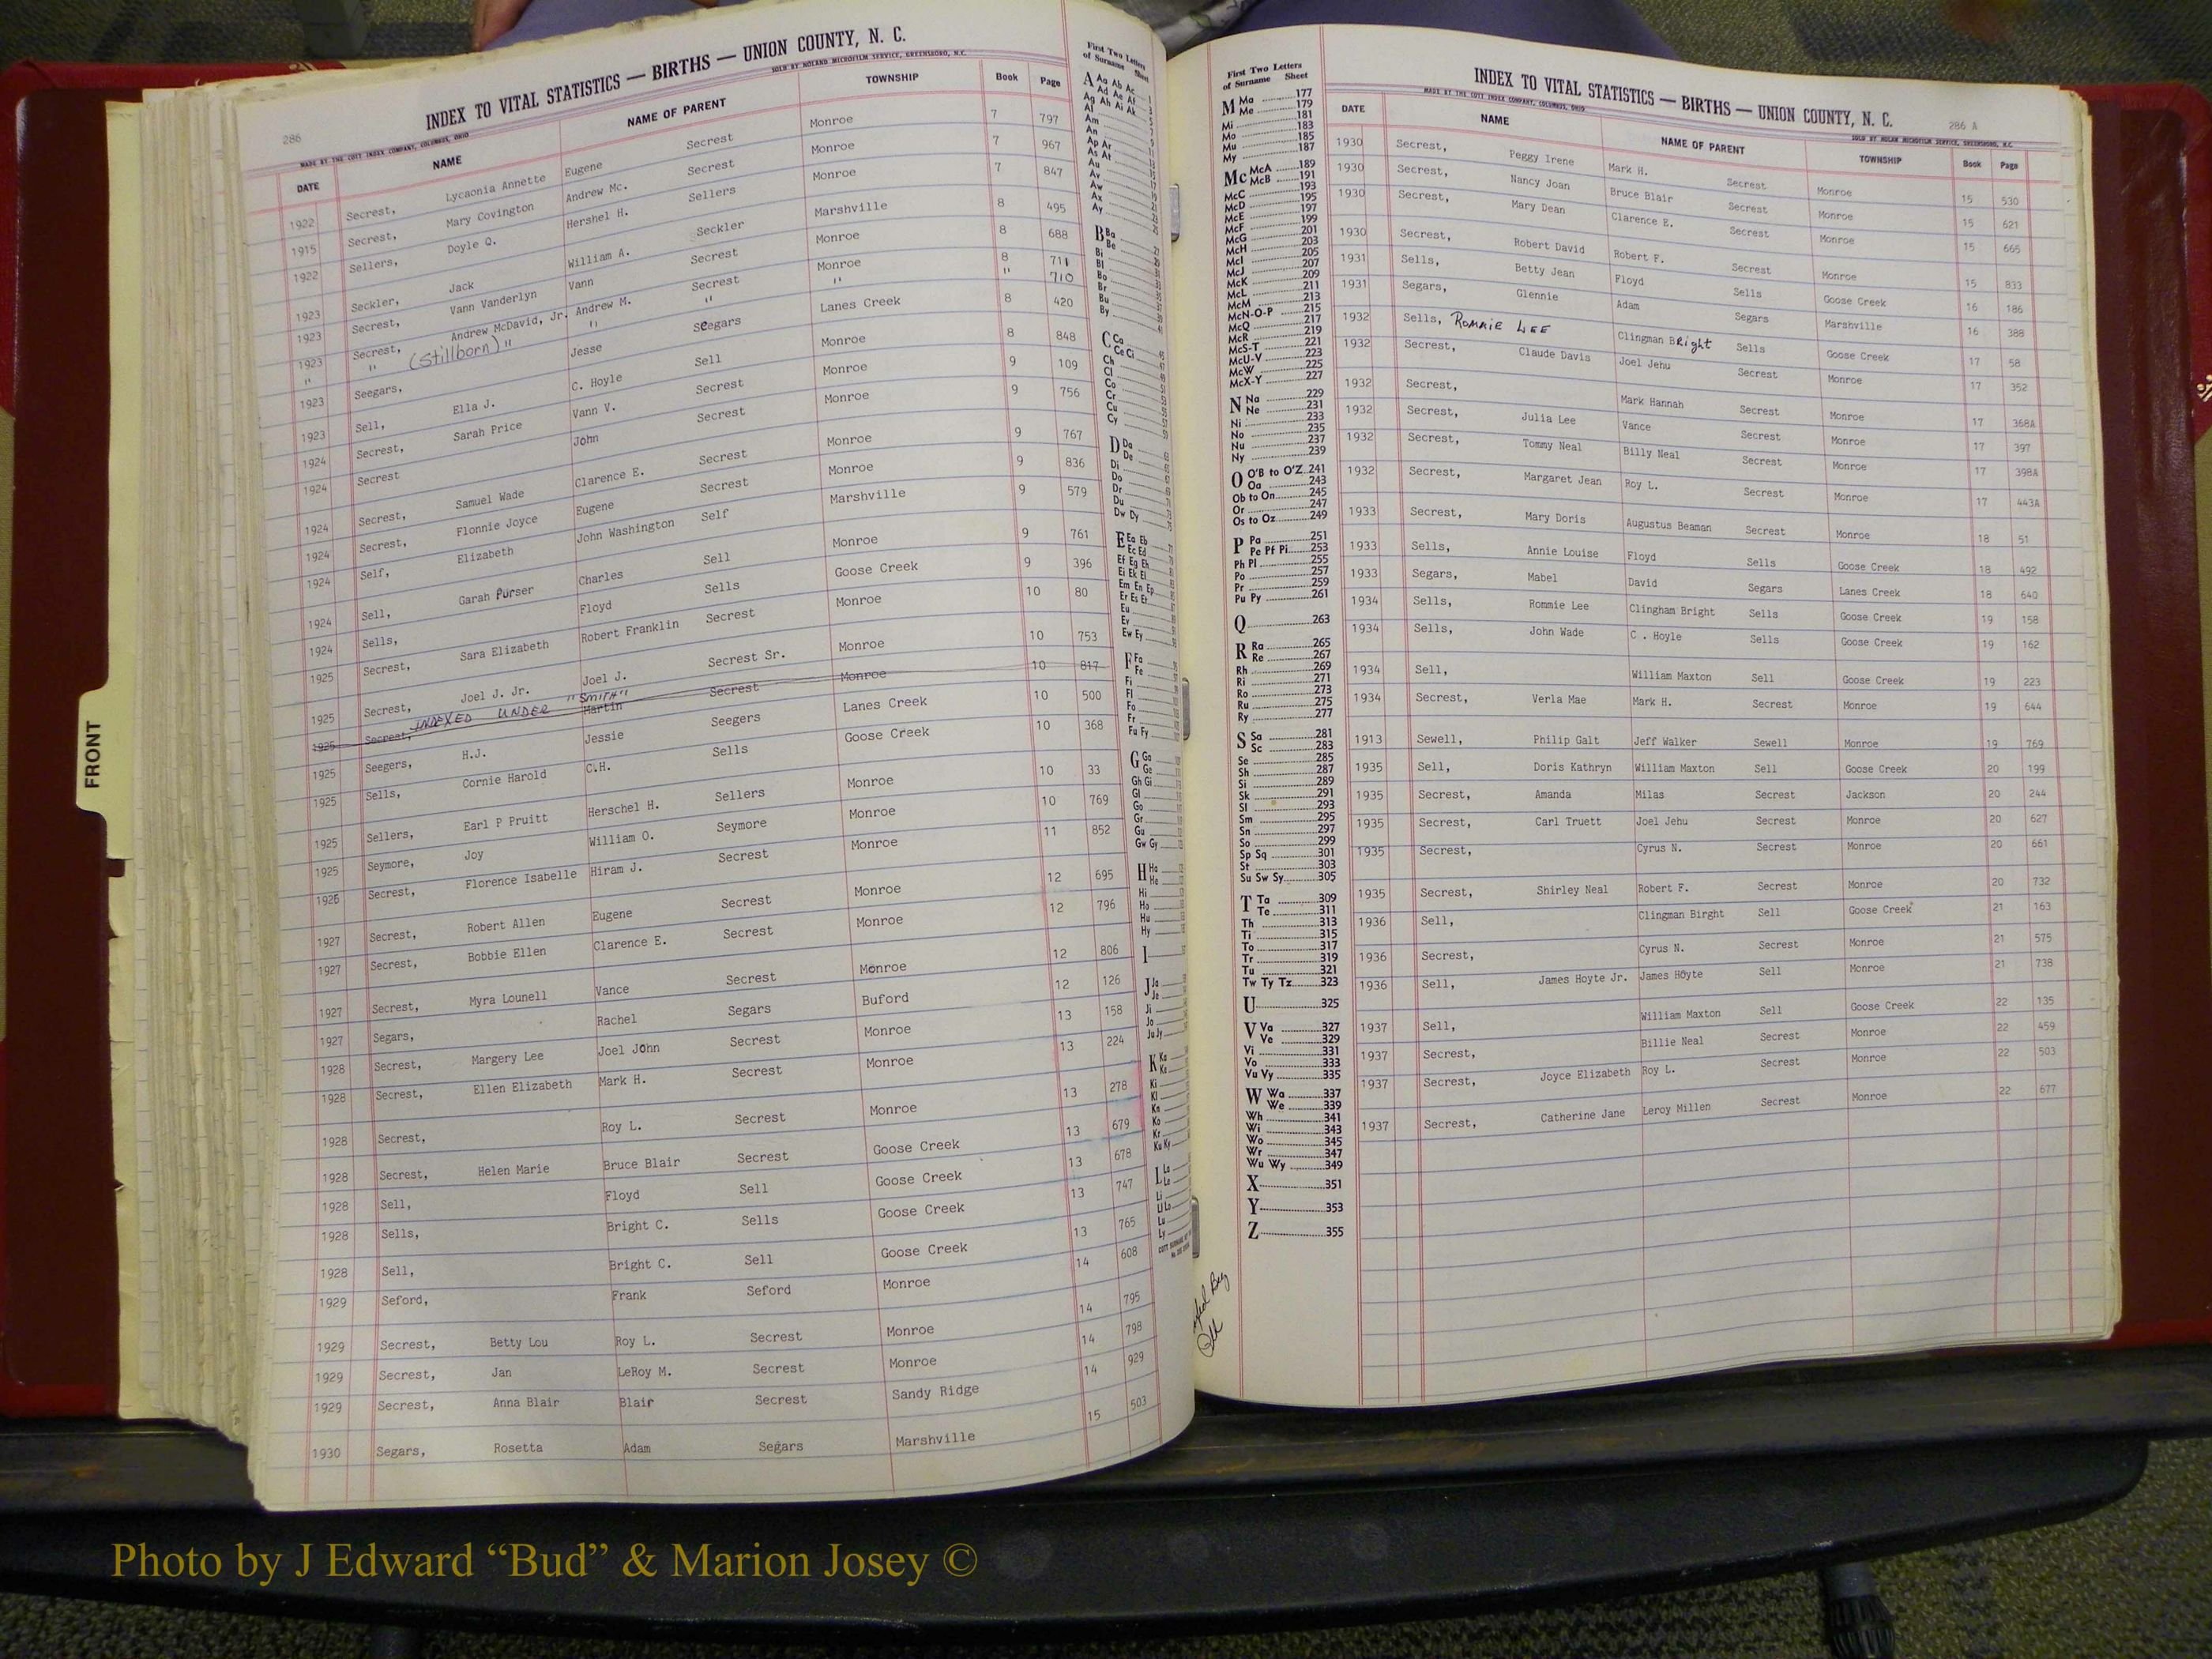 286
INDEX TO VITAL STATISTICS — BIRTHS — UNION COUNTY, N. C.
MADE BY THE COTT INDEX COMPANY, COLUMBUS, OHIO SOLD BY NOLAND MICROFILM SERVICE, GREENSBORO, N.C.
DATE NAME NAME OF PARENT TOWNSHIP Book Page
1922 Secrest, Lycaonia Annette Eugene Secrest Monroe 7 797
1915 Secrest, Mary Covington Andrew Mc. Secrest Monroe 7 967
1922 Sellers, Doyle Q. Hershel H. Sellers Monroe 7 847
1923 Seckler, Jack William A. Seckler Marshville 8 495
1923 Secrest, Vann Vanderlyn Vann Secrest Monroe 8 688
1923 Secrest, Andrew McDavid, Jr. Andrew M. Secrest Monroe 8 711
" " (Stillborn) " " " " " 710
1923 Seegars, Jesse Seegars Lanes Creek 8 420
1923 Sell, Ella J. C. Hoyle Sell Monroe 8 848
1924 Secrest, Sarah Price Vann V. Secrest Monroe 9 109
1924 Secrest John Secrest Monroe 9 756
1924 Secrest, Samuel Wade Clarence E. Secrest Monroe 9 767
1924 Secrest, Flonnie Joyce Eugene Secrest Monroe 9 836
1924 Self, Elizabeth John Washington Self Marshville 9 579
1924 Sell, Garah Purser Charles Sell Monroe 9 761
1924 Sells, Floyd Sells Goose Creek 9 396
1925 Secrest, Sara Elizabeth Robert Franklin Secrest Monroe 10 80
1925 Secrest, Joel J. Jr. Joel J. Secrest Sr. Monroe 10 753
1925 Secrest, INDEXED UNDER "SMITH" Martin Secrest Monroe 10 817
1925 Seegers, H.J. Jessie Seegers Lanes Creek 10 500
1925 Sells, Cornie Harold C.H. Sells Goose Creek 10 368
1925 Sellers, Earl P Pruitt Herschel H. Sellers Monroe 10 33
1925 Seymore, Joy William O. Seymore Monroe 10 769
1926 Secrest, Florence Isabelle Hiram J. Secrest Monroe 11 852
1927 Secrest, Robert Allen Eugene Secrest Monroe 12 695
1927 Secrest, Bobbie Ellen Clarence E. Secrest Monroe 12 796
1927 Secrest, Myra Lounell Vance Secrest Monroe 12 806
1927 Segars, Rachel Segars Buford 12 126
1928 Secrest, Margery Lee Joel John Secrest Monroe 13 158
1928 Secrest, Ellen Elizabeth Mark H. Secrest Monroe 13 224
1928 Secrest, Roy L. Secrest Monroe 13 278
1928 Secrest, Helen Marie Bruce Blair Secrest Goose Creek 13 679
1928 Sell, Floyd Sell Goose Creek 13 678
1928 Sells, Bright C. Sells Goose Creek 13 747
1928 Sell, Bright C. Sell Goose Creek 13 765
1929 Seford, Frank Seford Monroe 14 608
1929 Secrest, Betty Lou Roy L. Secrest Monroe 14 795
1929 Secrest, Jan LeRoy M. Secrest Monroe 14 798
1929 Secrest, Anna Blair Blair Secrest Sandy Ridge 14 929
1930 Segars, Rosetta Adam Segars Marshville 15 503
FRONT
First Two Letters
of Surname Sheet
A Aa Ab Ac
Ad Ae Af
Ag Ah Ai Ak
Al
Am
An
Ap Ar
As At
Au
Av
Aw
Ax
Ay
B Ba
Be
Bi
Bl
Bo
Br
Bu
By
C Ca
Ce Ci
Ch
Cl
Co
Cr
Cu
Cy
D Da
De
Di
Do
Dr
Du
Dw Dy
E Ea Eb
Ec Ed
Ef Eg Eh
Ei Ek El
Em En Ep
Er Es Et
Eu
Ev
Ew Ey
F Fa
Fe
Fi
Fl
Fo
Fr
Fu Fy
G Ga
Ge
Gh Gi
Gl
Go
Gr
Gu
Gw Gy
H Ha
He
Hi
Ho
Hu
Hy
I
J Ja
Je
Ji
Jo
Ju Jy
K Ka
Ke
Ki
Kl
Kn
Ko
Kr
Ku Ky
L La
Le
Li
Ll Lo
Lu
Ly
First Two Letters
of Surname Sheet
M Ma 177
Me 179
Mi 181
Mo 183
Mu 185
My 187
Mc McA 189
McB 191
McC 193
McD 195
McE 197
McF 199
McG 201
McH 203
McI 205
McJ 207
McK 209
McL 211
McM 213
McN-O-P 215
McQ 217
McR 219
McS-T 221
McU-V 223
McW 225
McX-Y 227
N Na 229
Ne 231
Ni 233
No 235
Nu 237
Ny 239
O O'B to O'Z 241
Oa 243
Ob to On 245
Or 247
Os to Oz 249
P Pa 251
Pe Pf Pi 253
Ph Pl 255
Po 257
Pr 259
Pu Py 261
Q 263
R Ra 265
Re 267
Rh 269
Ri 271
Ro 273
Ru 275
Ry 277
S Sa 281
Sc 283
Se 285
Sh 287
Si 289
Sk 291
Sl 293
Sm 295
Sn 297
So 299
Sp Sq 301
St 303
Su Sw Sy 305
T Ta 309
Te 311
Th 313
Ti 315
To 317
Tr 319
Tu 321
Tw Ty Tz 323
U 325
V Va 327
Ve 329
Vi 331
Vo 333
Vu Vy 335
W Wa 337
We 339
Wh 341
Wi 343
Wo 345
Wr 347
Wu Wy 349
X 351
Y 353
Z 355
INDEX TO VITAL STATISTICS — BIRTHS — UNION COUNTY, N. C.
286 A
MADE BY THE COTT INDEX COMPANY, COLUMBUS, OHIO SOLD BY NOLAN MICROFILM SERVICE, GREENSBORO, N.C.
DATE NAME NAME OF PARENT TOWNSHIP Book Page
1930 Secrest, Peggy Irene Mark H. Secrest Monroe 15 530
1930 Secrest, Nancy Joan Bruce Blair Secrest Monroe 15 621
1930 Secrest, Mary Dean Clarence E. Secrest Monroe 15 665
1930 Secrest, Robert David Robert F. Secrest Monroe 15 833
1931 Sells, Betty Jean Floyd Sells Goose Creek 16 186
1931 Segars, Glennie Adam Segars Marshville 16 388
1932 Sells, Rommie LEE Clingman BRight Sells Goose Creek 17 58
1932 Secrest, Claude Davis Joel Jehu Secrest Monroe 17 352
1932 Secrest, Mark Hannah Secrest Monroe 17 368A
1932 Secrest, Julia Lee Vance Secrest Monroe 17 397
1932 Secrest, Tommy Neal Billy Neal Secrest Monroe 17 398A
1932 Secrest, Margaret Jean Roy L. Secrest Monroe 17 443A
1933 Secrest, Mary Doris Augustus Beaman Secrest Monroe 18 51
1933 Sells, Annie Louise Floyd Sells Goose Creek 18 492
1933 Segars, Mabel David Segars Lanes Creek 18 640
1934 Sells, Rommie Lee Clingham Bright Sells Goose Creek 19 158
1934 Sells, John Wade C . Hoyle Sells Goose Creek 19 162
1934 Sell, William Maxton Sell Goose Creek 19 223
1934 Secrest, Verla Mae Mark H. Secrest Monroe 19 644
1913 Sewell, Philip Galt Jeff Walker Sewell Monroe 19 769
1935 Sell, Doris Kathryn William Maxton Sell Goose Creek 20 199
1935 Secrest, Amanda Milas Secrest Jackson 20 244
1935 Secrest, Carl Truett Joel Jehu Secrest Monroe 20 627
1935 Secrest, Cyrus N. Secrest Monroe 20 661
1935 Secrest, Shirley Neal Robert F. Secrest Monroe 20 732
1936 Sell, Clingman Birght Sell Goose Creek 21 163
1936 Secrest, Cyrus N. Secrest Monroe 21 575
1936 Sell, James Hoyte Jr. James Hoyte Sell Monroe 21 738
1937 Sell, William Maxton Sell Goose Creek 22 135
1937 Secrest, Billie Neal Secrest Monroe 22 459
1937 Secrest, Joyce Elizabeth Roy L. Secrest Monroe 22 503
1937 Secrest, Catherine Jane Leroy Millen Secrest Monroe 22 677
Photo by J Edward “Bud” & Marion Josey ©